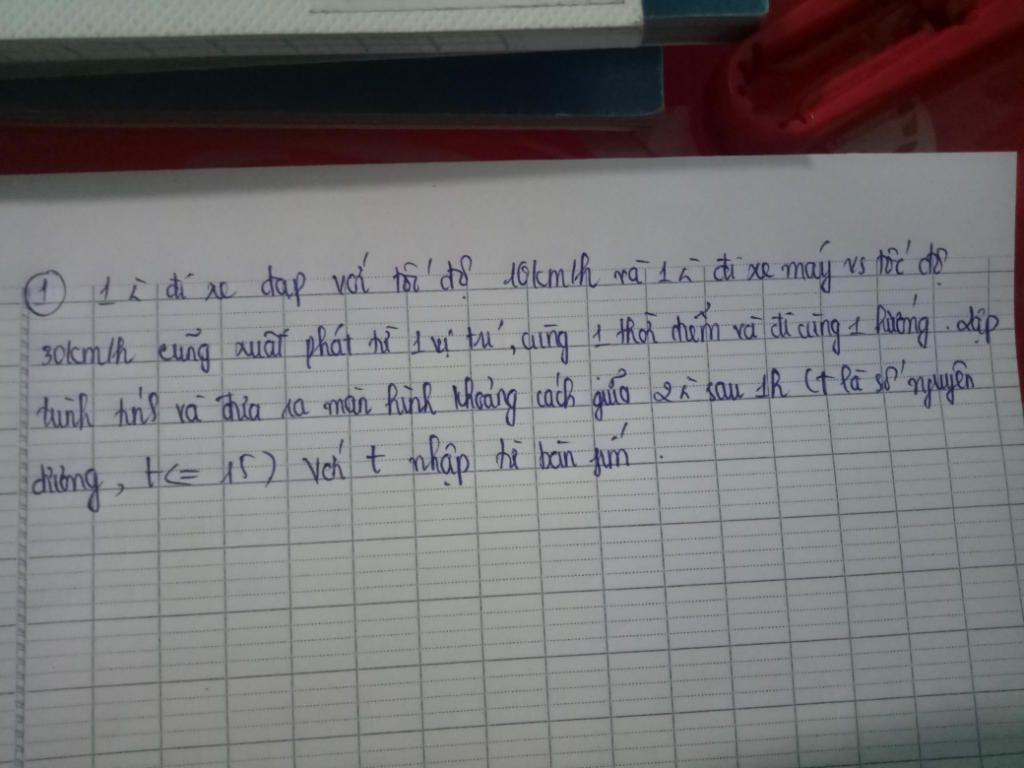 ① 1 ề đi xe đạp với tốc độ 10km/h và 1 ề đi xe máy vs tốc độ
30km/h cùng xuất phát từ 1 vị trí, cùng 1 thời điểm và đi cùng 1 hướng. Lập
trình tính và đưa ra màn hình khoảng cách giữa 2 ề sau th (t là số nguyên
dương, t<= 15) với t nhập từ bàn phím.